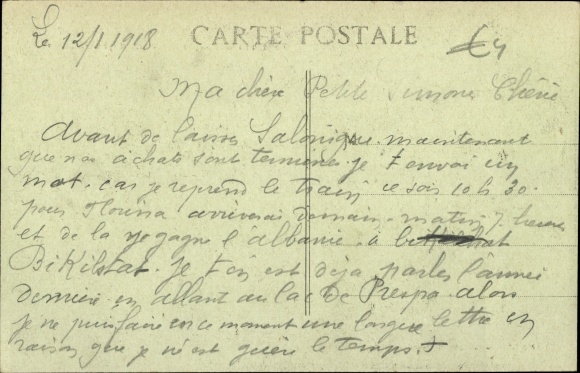 Le 12/1 1918
CARTE POSTALE
Ma chère Petite Simone Chérie
Avant de laisser Salonique. maintenant
que nos achats sont terminés. je t envoi un
mot. car je reprend le train ce soir 10h 30.
pour Florina arriverai demain. matin 7. heures
et de la regagne l'albanie. à
Biklistat. Je t en est déja parler l'année
dernière en allant au lac de Prespa. alors
je ne puis faire en ce moment une longue lettre en
raison que je n'est guère le temps. +